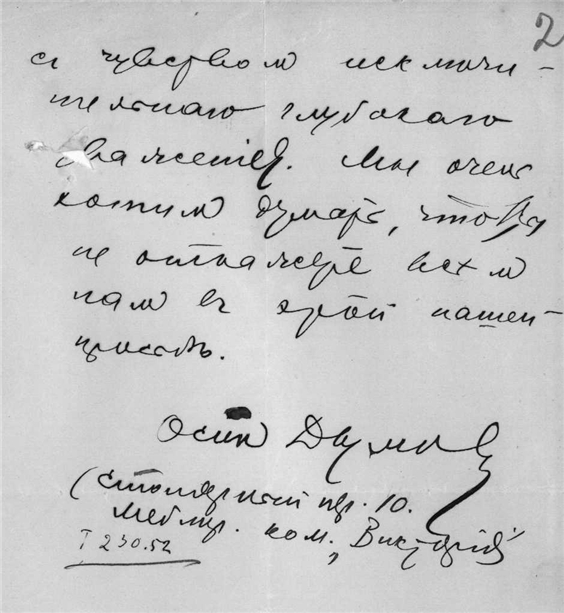 2
съ чувством исключи-
тельнаго глубокаго
уваженія. Мы очень
хотим думать, что Вы
не откажете всѣм
нам въ этой нашей
просьбѣ.
Осип Дымов
(Столярный пер. 10.
Меблир. ком. „Виктория"
Т 230.52